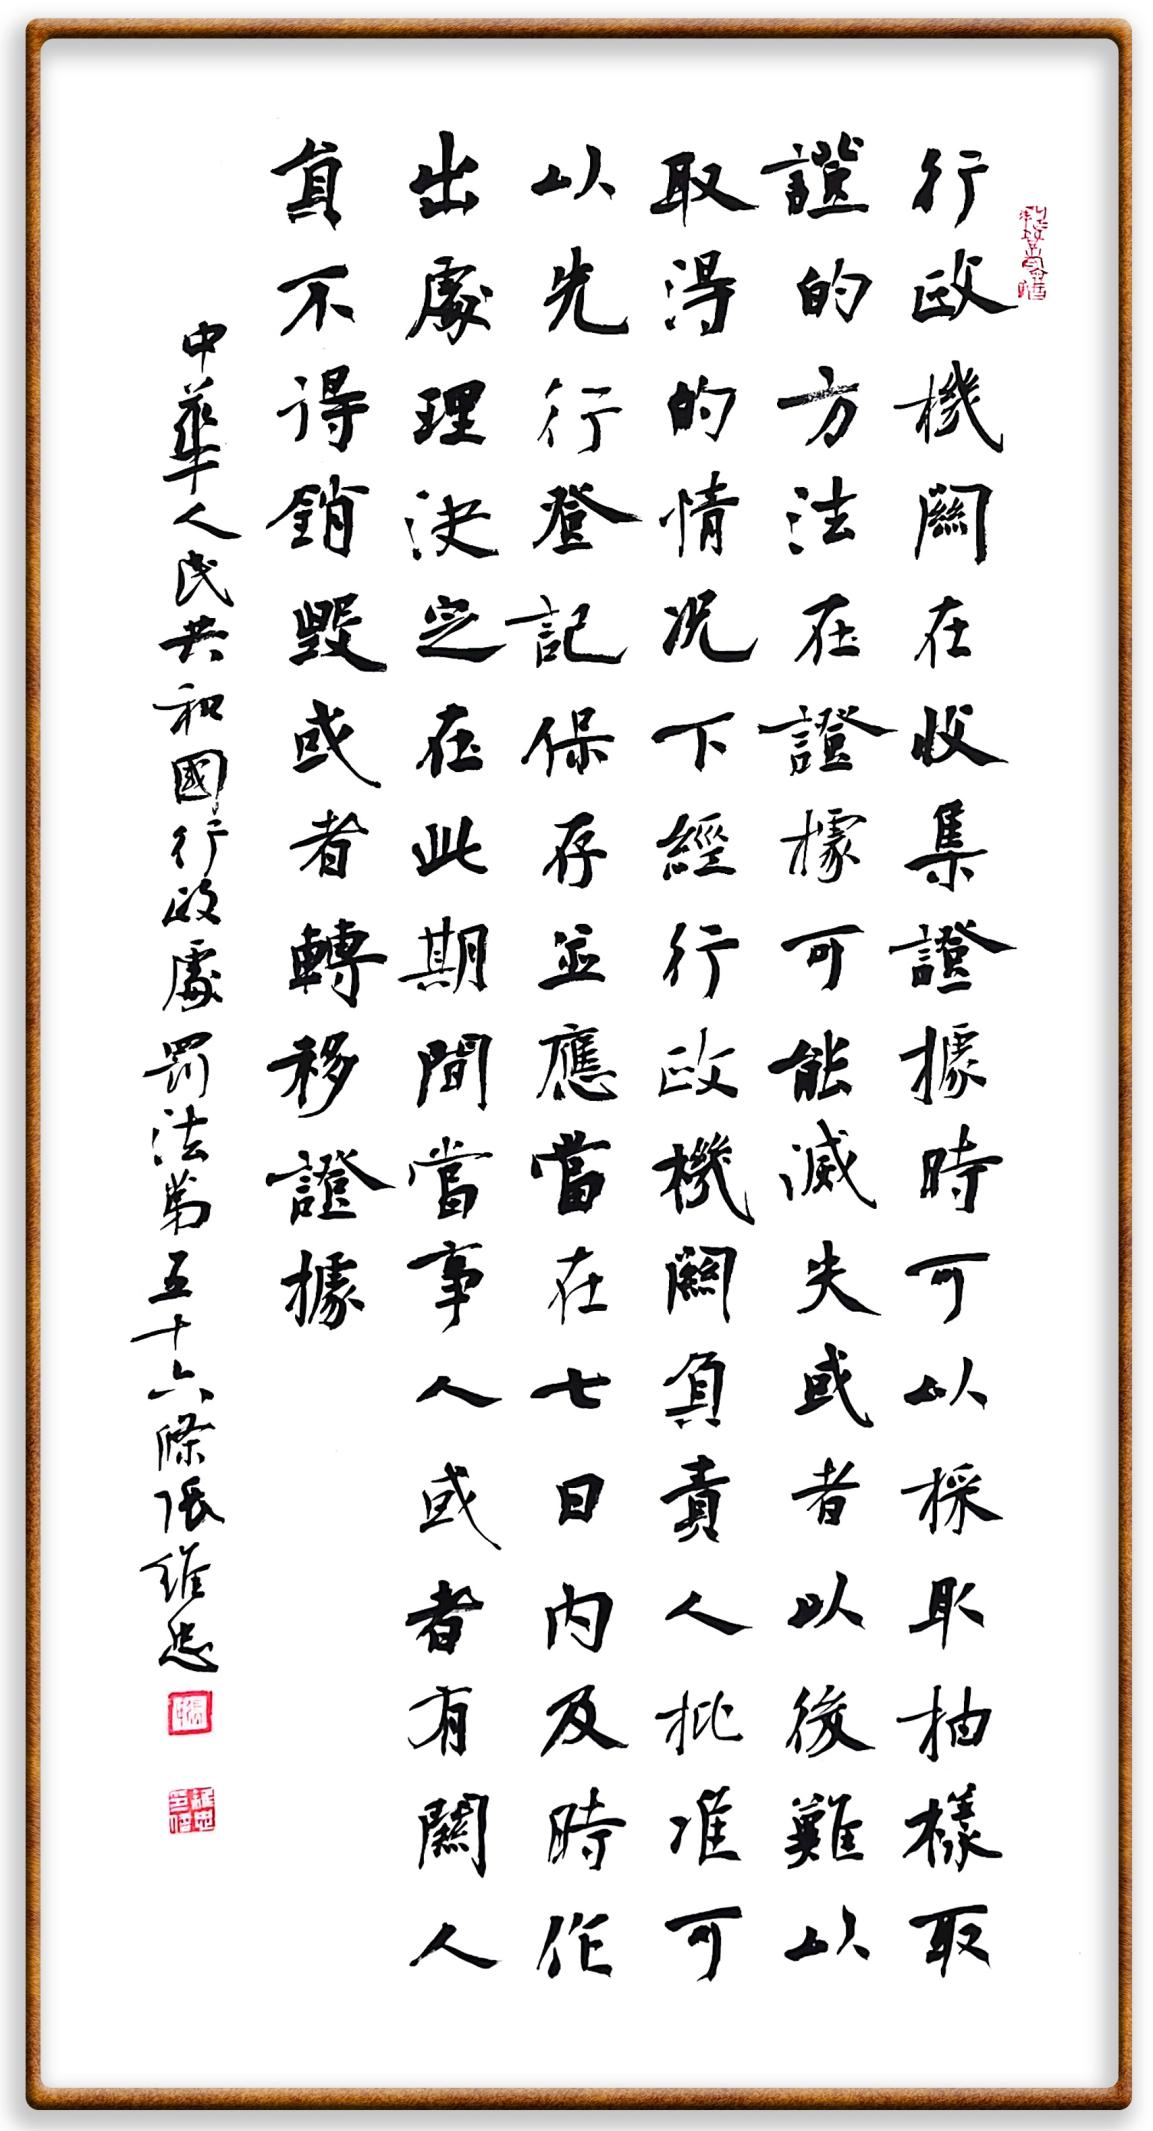 行政機關在收集證據時可以採取抽樣取
證的方法在證據可能滅失或者以後難以
取得的情况下經行政機關負責人批准可
以先行登記保存並應當在七日内及時作
出處理決定在此期間當事人或者有關人
員不得銷毀或者轉移證據
中華人民共和國行政處罰法第五十六條張維忠